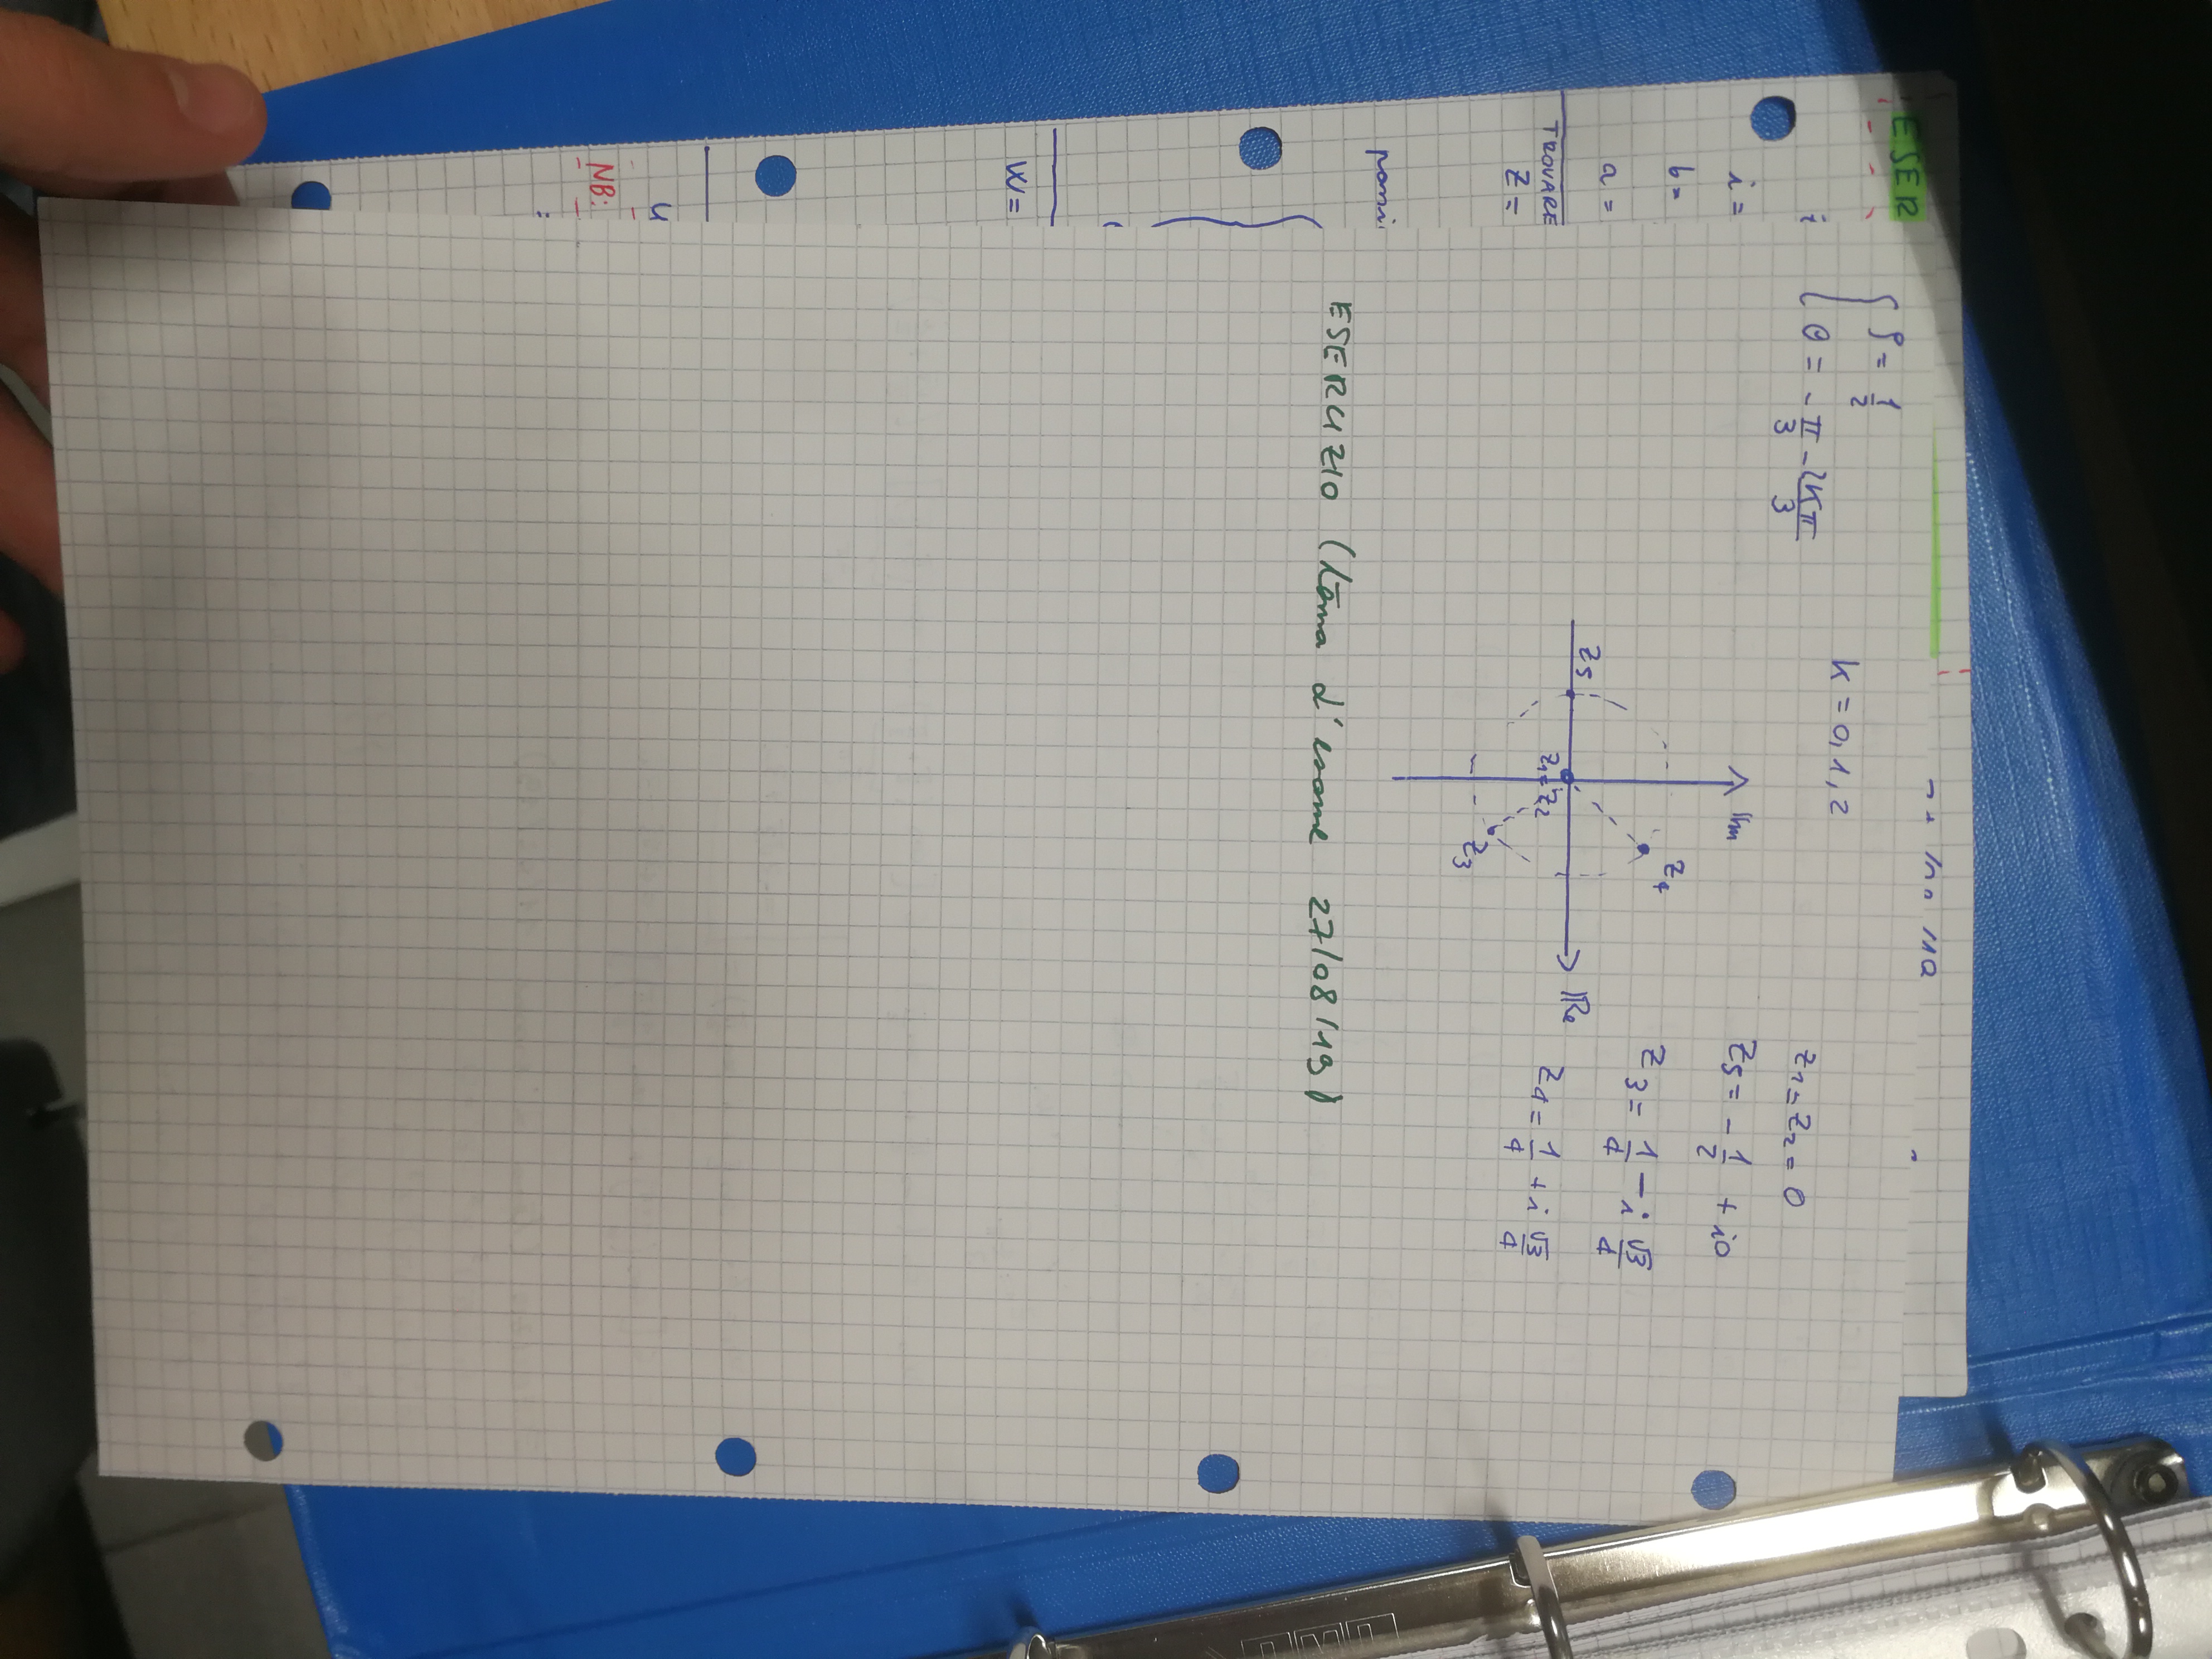 ESER
i =
b =
a =
TROVARE
Z =
poni
W =
NB:
ρ = 1/2
θ = - π/3 - 2kπ/3
k = 0, 1, 2
Im
Re
z5
z4
z1 = z2
z3
z1 = z2 = 0
z5 = - 1/2 + i0
z3 = 1/4 - i √3/4
z4 = 1/4 + i √3/4
ESERCIZIO ( d'esame 27/08/19)